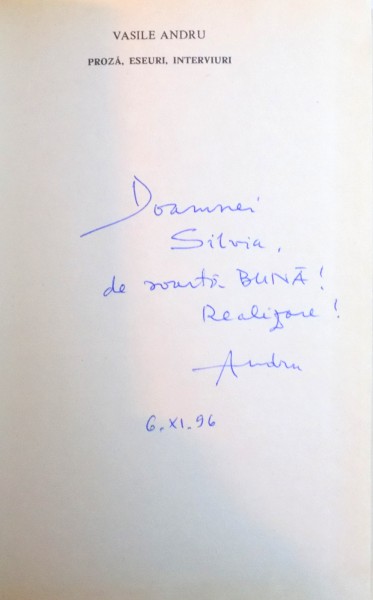 VASILE ANDRU
PROZĂ, ESEURI, INTERVIURI
Doamnei
Silvia,
de soartă BUNĂ!
Realizare!
Andru
6.XI.96